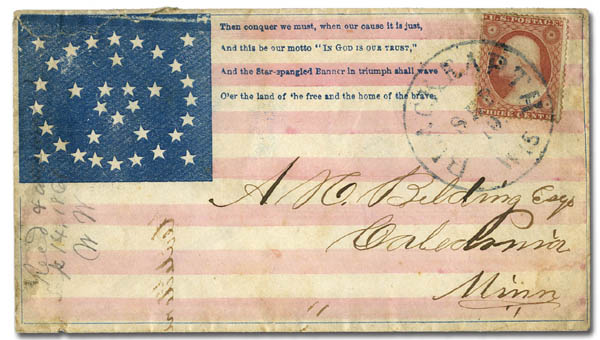 Then conquer we must, when our cause it is just,
And this be our motto "IN GOD IS OUR TRUST,"
And the Star-spangled Banner in triumph shall wave
O'er the land of the free and the home of the brave.
U.S. POSTAGE
THREE CENTS
BLACK EARTH
WIS
A. H. Belding Esq
Caledonia
Minn
Recd & a
W W